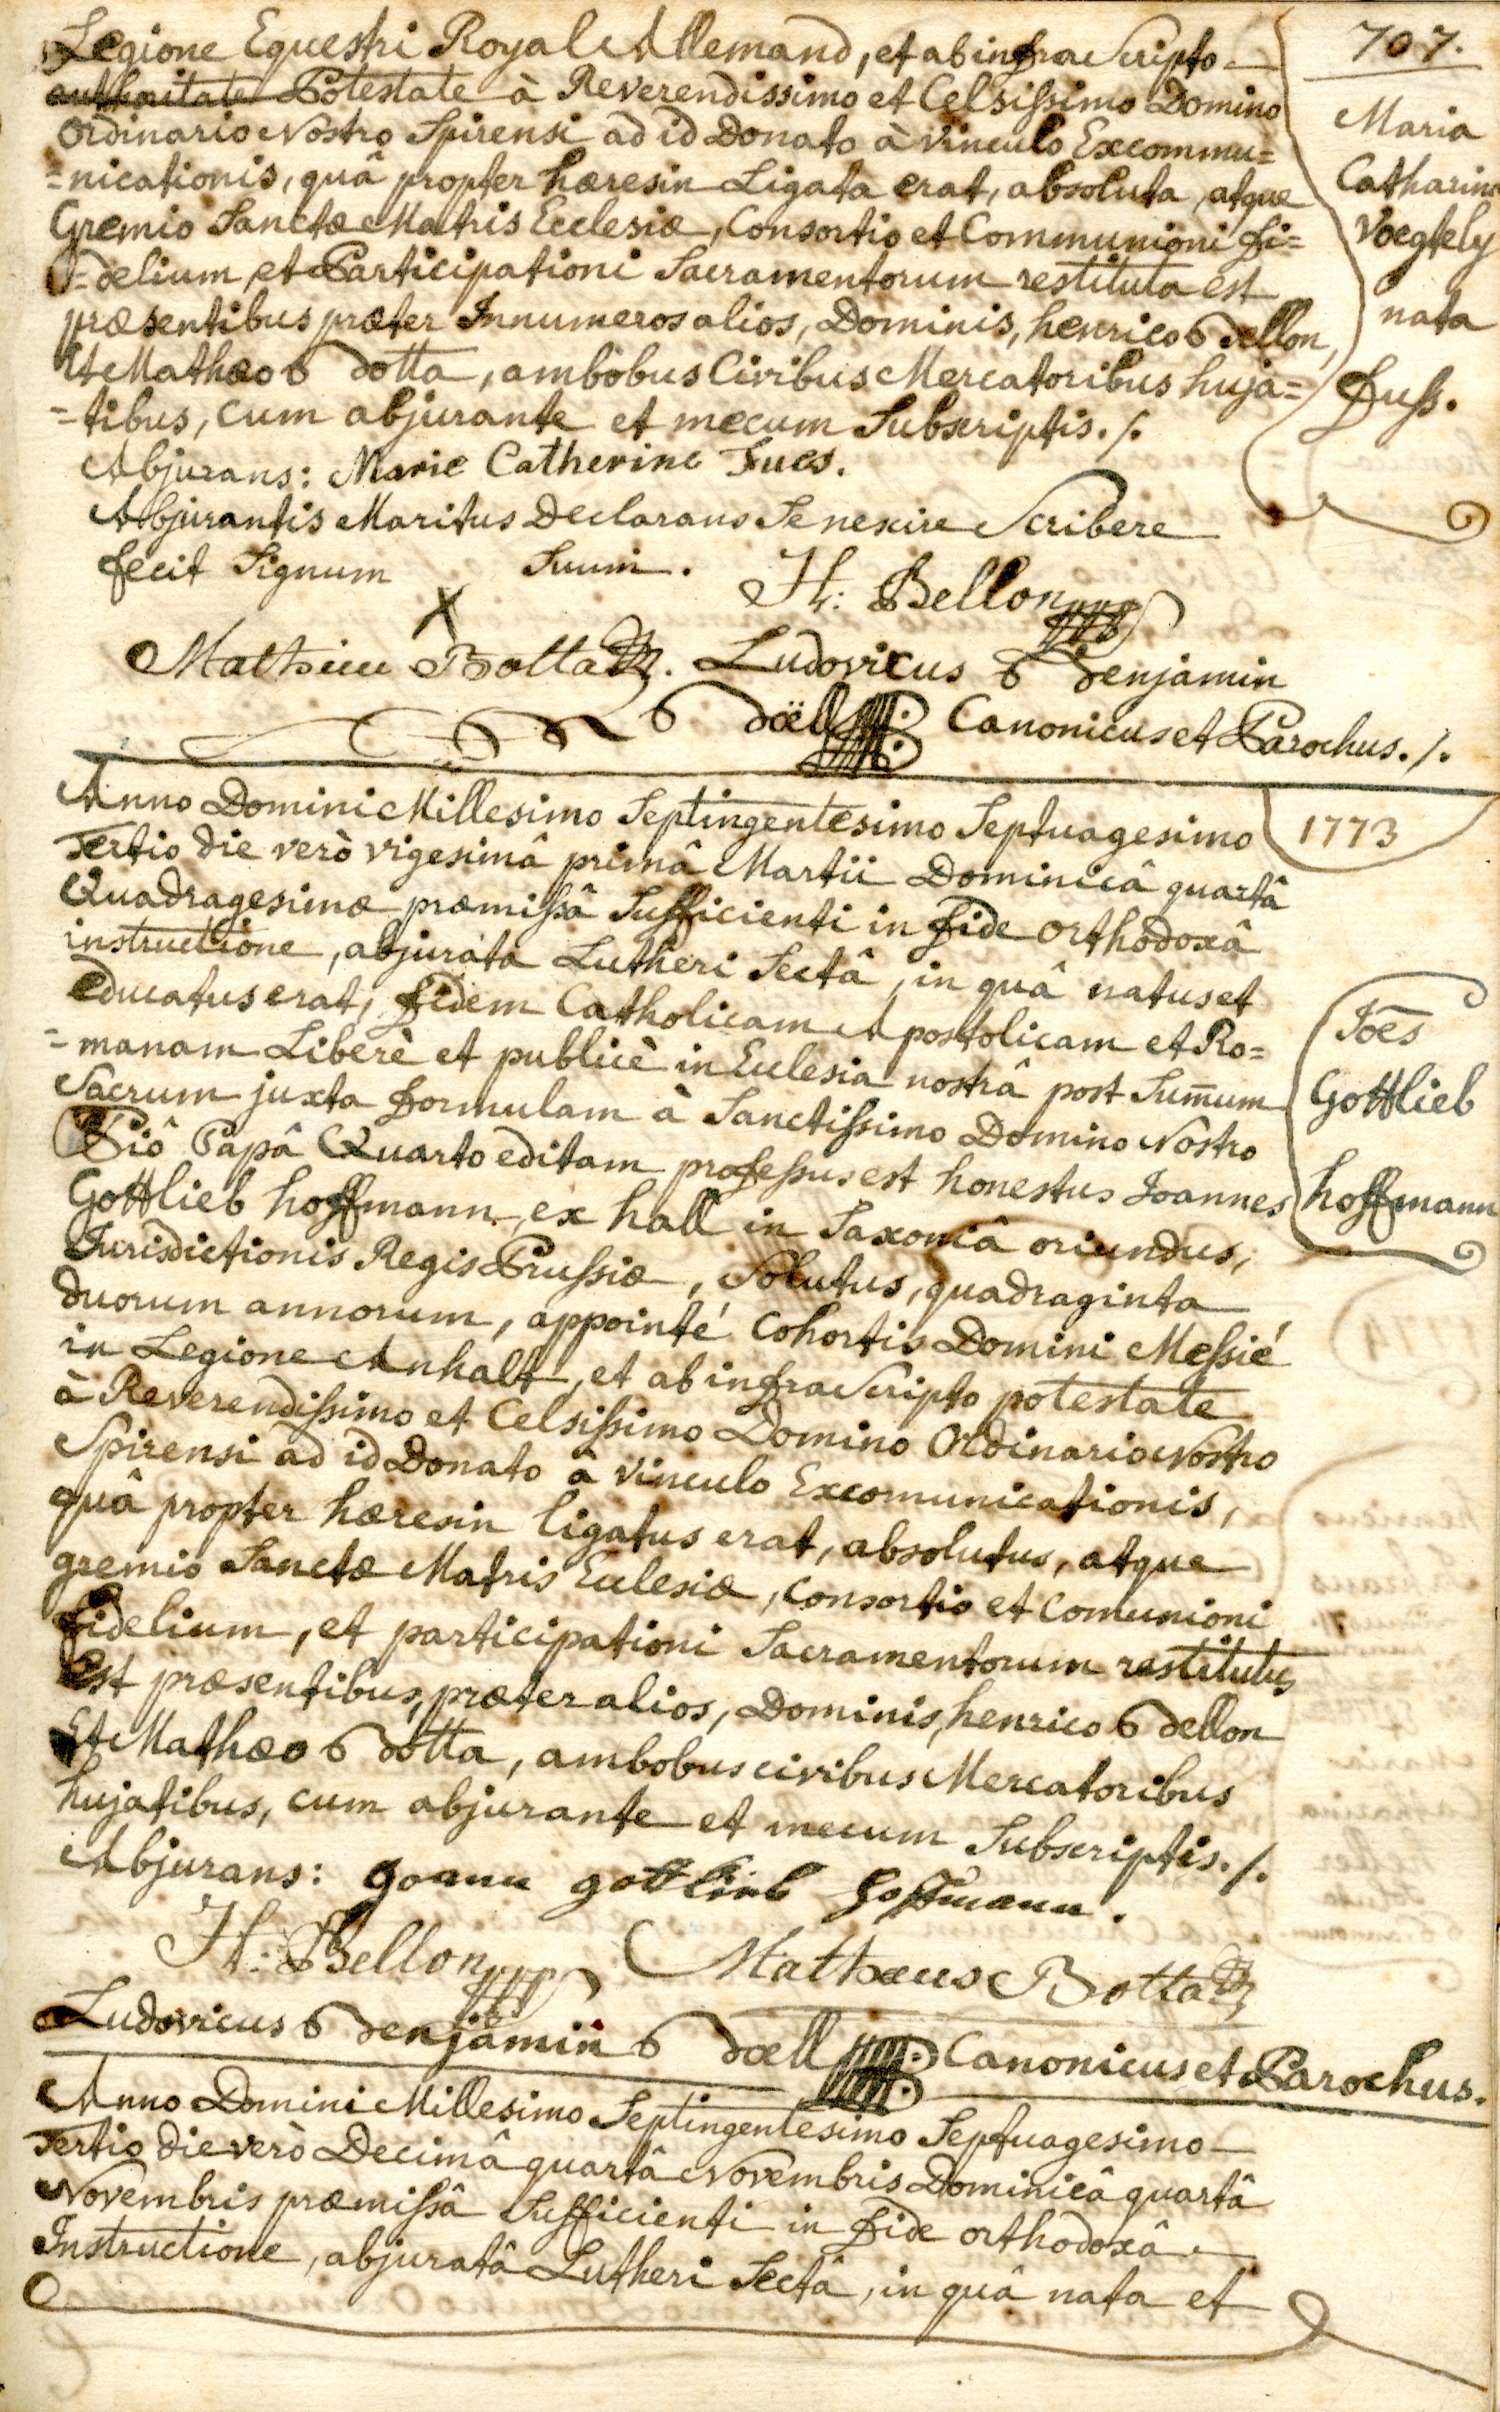 707.
Maria
Catharina
Voegtely
nata
Fuss.
Legione Equestri Royal Allemand, et ab infra Scripto
authoritate Potestate à Reverendissimo et Celsissimo Domino
Ordinario Nostro Spirensi ad id Donato à Vinculo Excommu=
=nicationis, quâ propter hæresin Ligata erat, absoluta, atque
Gremio Sanctæ Matris Ecclesiæ, Consortio et Communioni fi=
=delium, et Participationi Sacramentorum restituta est
præsentibus præter Innumeros alios, Dominis, henrico Bellon,
Et Mathæo Botta, ambobus Civibus Mercatoribus huja=
=tibus, cum abjurante et mecum Subscriptis. /.
Abjurans: Marie Catherine Fues.
Abjurantis Maritus Declarans Se nescire Scribere
fecit Signum Suum.
X
H: Bellon
Mathieu Botta. Ludovicus Benjamin
Boëll Canonicus et Parochus. /.
1773
Anno Domini Millesimo Septingentesimo Septuagesimo
Tertio die verò vigesimâ primâ Martii Dominicâ quartâ
Quadragesimæ præmissâ Sufficienti in fide Orthodoxâ
instructione, abjurata Lutheri Sectâ, in quâ natus et
educatus erat, fidem Catholicam Apostolicam et Ro=
=manam Liberè et publicè in Eclesia nostrâ post Sum̄um
Sacrum juxta formulam à Sanctissimo Domino Nostro
Piô Papâ Quarto editam professus est honestus Joannes
Gottlieb hoffmann, ex hall in Saxoniâ oriundus,
Jurisdictionis Regis Prussiæ, Solutus, quadraginta
duorum annorum, appointé Cohortis Domini Messié
in Legione Anhalt, et ab infra Scripto potestate
à Reverendissimo et Celsissimo Domino Ordinario Nostro
Spirensi ad id Donato â vinculo Excomunicationis,
quâ propter hæresin ligatus erat, absolutus, atque
gremio Sanctæ Matris Eclesiæ, Consortio et Comunioni
fidelium, et participationi Sacramentorum restitutus
Est præsentibus, præter alios, Dominis, henrico Bellon
Et Mathæo Botta, ambobus civibus Mercatoribus
hujatibus, cum abjurante et mecum Subscriptis. /.
Joēs
Gottlieb
hoffmann
Abjurans: Joann gottlieb hoffmann.
H: Bellon Mathæus Botta
Ludovicus Benjamin Boell Canonicus et Parochus.
Anno Domini Millesimo Septingentesimo Septuagesimo
Tertio die verò Decimâ quartâ Novembris Dominicâ quartâ
Novembris præmissâ Sufficienti in fide orthodoxâ
Instructione, abjuratâ Lutheri Sectâ, in quâ nata et